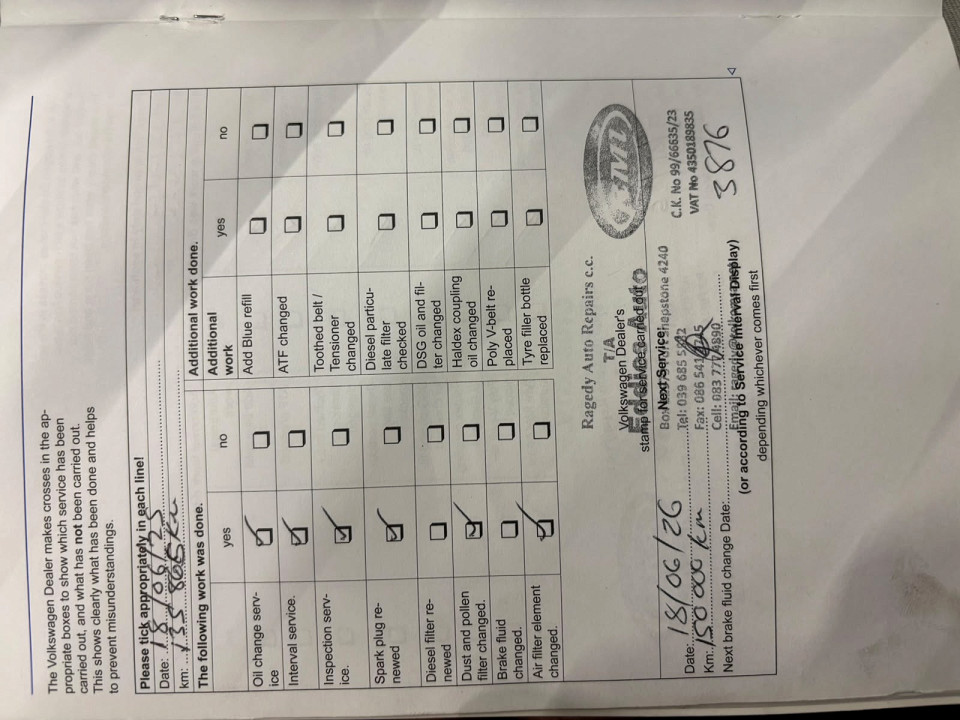 The Volkswagen Dealer makes crosses in the ap-
propriate boxes to show which service has been
carried out, and what has not been carried out.
This shows clearly what has been done and helps
to prevent misunderstandings.
Please tick appropriately in each line!
Date: 18/06/25
km: 135 866 km
The following work was done.
yes no
Oil change serv-
ice
Interval service.
Inspection serv-
ice.
Spark plug re-
newed
Diesel filter re-
newed
Dust and pollen
filter changed.
Brake fluid
changed.
Air filter element
changed.
Additional work done.
Additional
work
yes no
Add Blue refill
ATF changed
Toothed belt /
Tensioner
changed
Diesel particu-
late filter
checked
DSG oil and fil-
ter changed
Haldex coupling
oil changed
Poly V-belt re-
placed
Tyre filler bottle
replaced
Ragedy Auto Repairs c.c.
T/A
Volkswagen Dealer's
Eddie Auto
stamp for service carried out
RMI
Next Service:
Shepstone 4240
C.K. No 99/66635/23
Tel: 039 685
VAT No 4350189835
Fax: 086
Cell: 083
Email:
3876
Date: 18/06/26
Km: 150 000 km
Next brake fluid change Date:
(or according to Service Interval Display)
depending whichever comes first